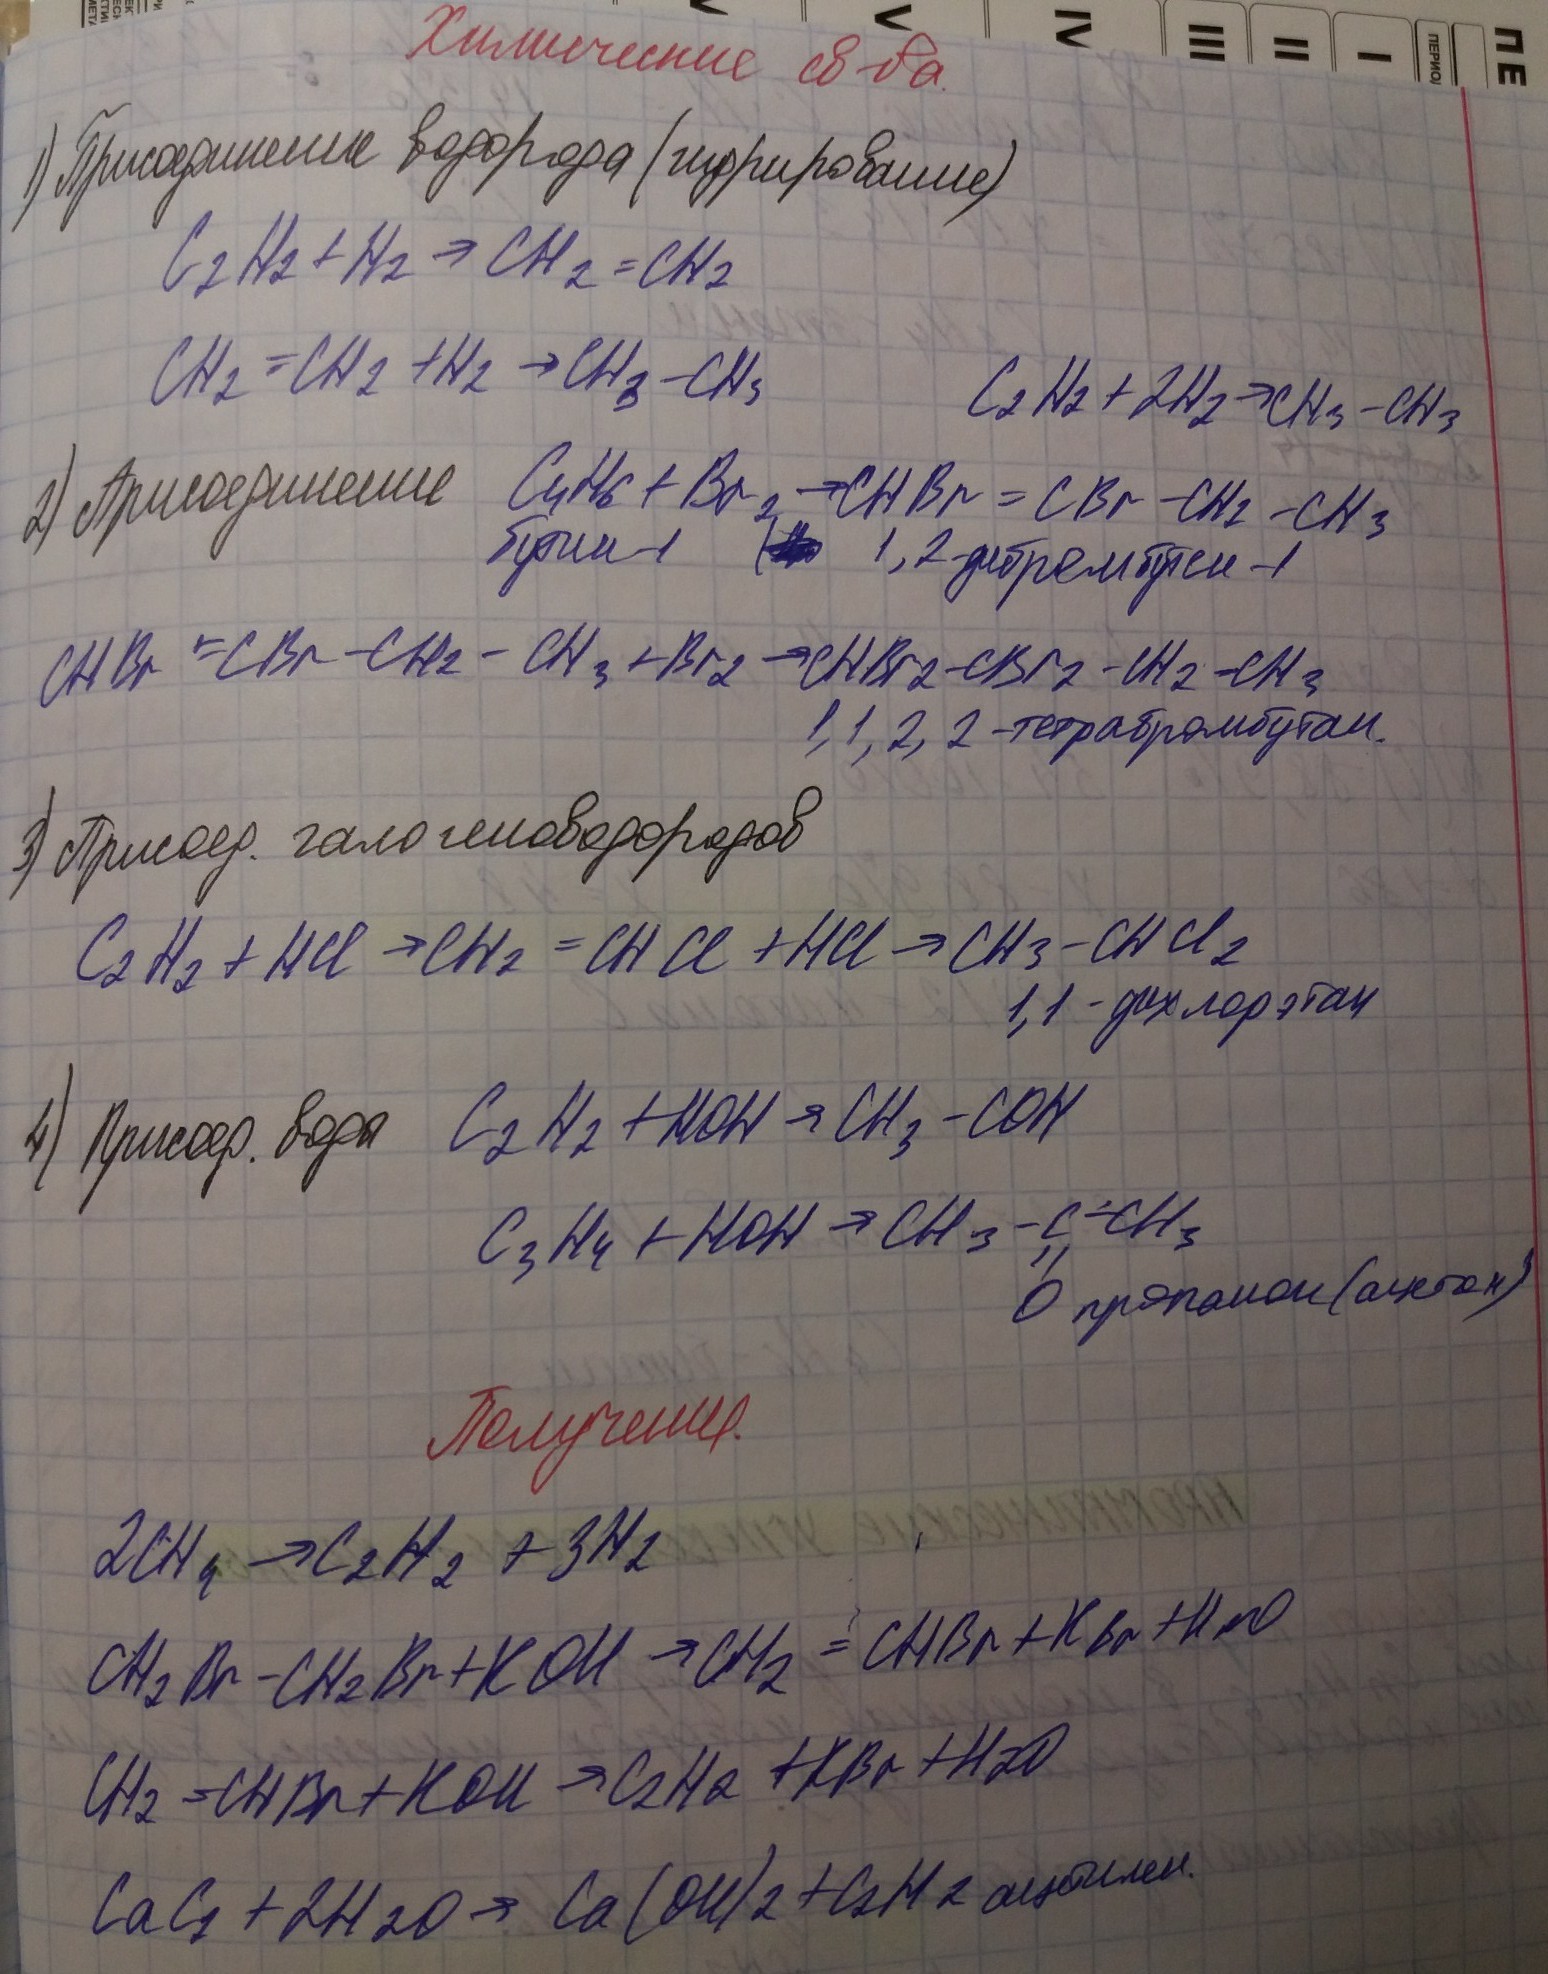 V
V
IV
III
II
I
ПЕРИОД
ПЕ
Химические св-ва.
1) Присоединение водорода (гидрирование)
C2H2 + H2 → CH2 = CH2
CH2 = CH2 + H2 → CH3 - CH3
C2H2 + 2H2 → CH3 - CH3
2) Присоединение C4H6 + Br2 → CHBr = CBr - CH2 - CH3
бутин-1 1,2-дибромбутен-1
CHBr = CBr - CH2 - CH3 + Br2 → CHBr2 - CBr2 - CH2 - CH3
1,1,2,2-тетрабромбутан.
3) Присоед. галогеноводородов
C2H2 + HCl → CH2 = CHCl + HCl → CH3 - CHCl2
1,1-дихлорэтан
4) Присоед. воды C2H2 + HOH → CH3 - COH
C3H4 + HOH → CH3 - C - CH3
O пропанон (ацетон)
Получение.
2CH4 → C2H2 + 3H2
CH2Br - CH2Br + KOH → CH2 = CHBr + KBr + H2O
CH2 = CHBr + KOH → C2H2 + KBr + H2O
CaC2 + 2H2O → Ca(OH)2 + C2H2 ацетилен.